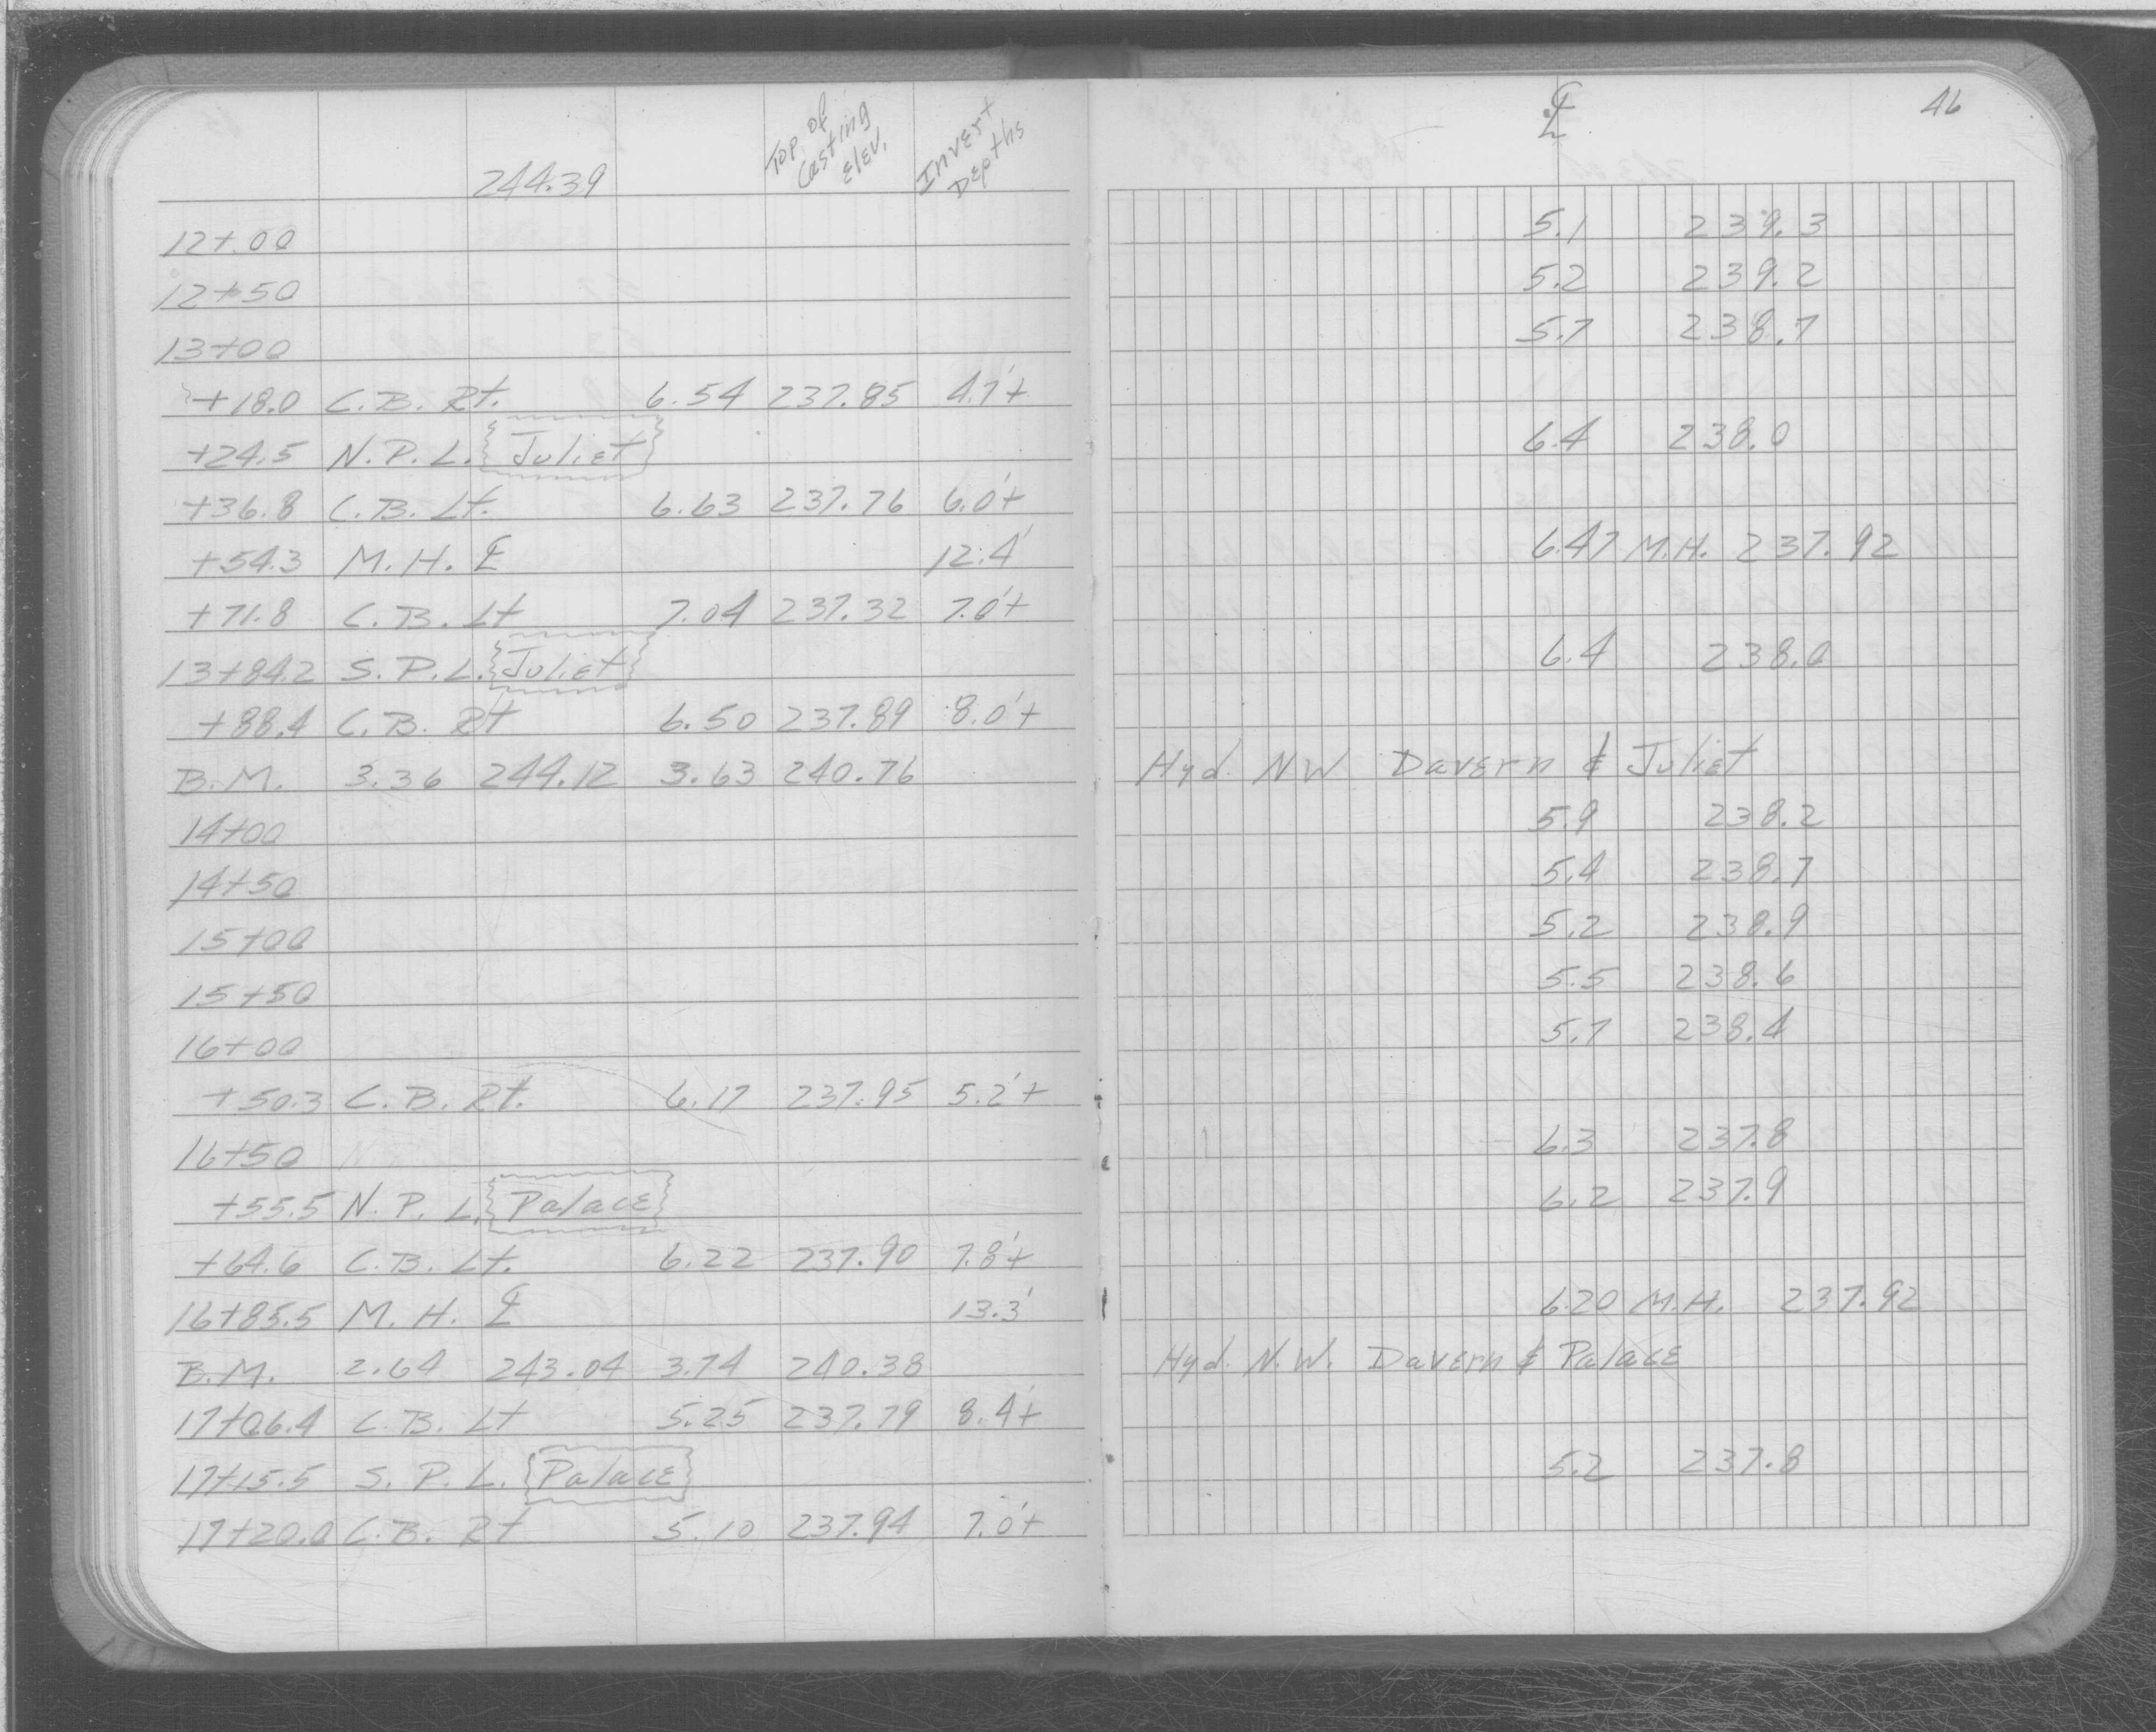 244.39 Top of Casting Elev. Invert Depths ℄ 46
12+00 5.1 239.3
12+50 5.2 239.2
13+00 5.7 238.7
+18.0 C.B. Rt. 6.54 237.85 4.7'±
+24.5 N.P.L. Juliet 6.4 238.0
+36.8 C.B. Lt. 6.63 237.76 6.0'±
+54.3 M.H. ℄ 12.4' 6.47 M.H. 237.92
+71.8 C.B. Lt 7.04 237.32 7.0'±
13+84.2 S.P.L. Juliet 6.4 238.0
+88.4 C.B. Rt 6.50 237.89 8.0'±
B.M. 3.36 244.12 3.63 240.76 Hyd. NW Davern & Juliet
14+00 5.9 238.2
14+50 5.4 238.7
15+00 5.2 238.9
15+50 5.5 238.6
16+00 5.7 238.4
+50.3 C.B. Rt. 6.17 237.95 5.2'±
16+50 6.3 237.8
+55.5 N.P.L. Palace 6.2 237.9
+64.6 C.B. Lt. 6.22 237.90 7.8'±
16+85.5 M.H. ℄ 13.3' 6.20 M.H. 237.92
B.M. 2.64 243.04 3.74 240.38 Hyd. N.W. Davern & Palace
17+06.4 C.B. Lt 5.25 237.79 8.4'±
17+15.5 S.P.L. Palace 5.2 237.8
17+20.0 C.B. Rt 5.10 237.94 7.0'±